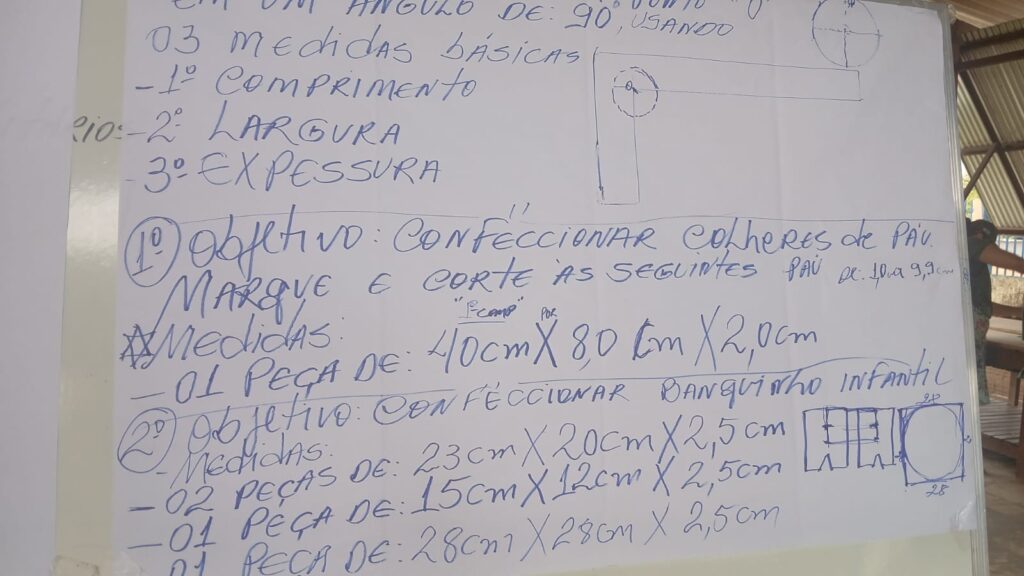 EM UM ÂNGULO DE: 90°, USANDO
03 medidas básicas
- 1º COMPRIMENTO
- 2º LARGURA
- 3º EXPESSURA
1º Objetivo: CONFÉCCIONAR COLHERES de PÁU.
MARQUE E CORTE AS SEGUINTES PAÚ
Medidas:
"1º COMP" POR
- 01 PEÇA DE: 40cm X 8,0 cm X 2,0cm
2º Objetivo: CONFÉCCIONAR BANQUINHO INFANTIL
- Medidas:
- 02 PEÇAS DE: 23cm X 20cm X 2,5cm
- 01 PEÇA DE: 15cm X 12cm X 2,5cm
01 PEÇA DE: 28cm X 28cm X 2,5cm
28